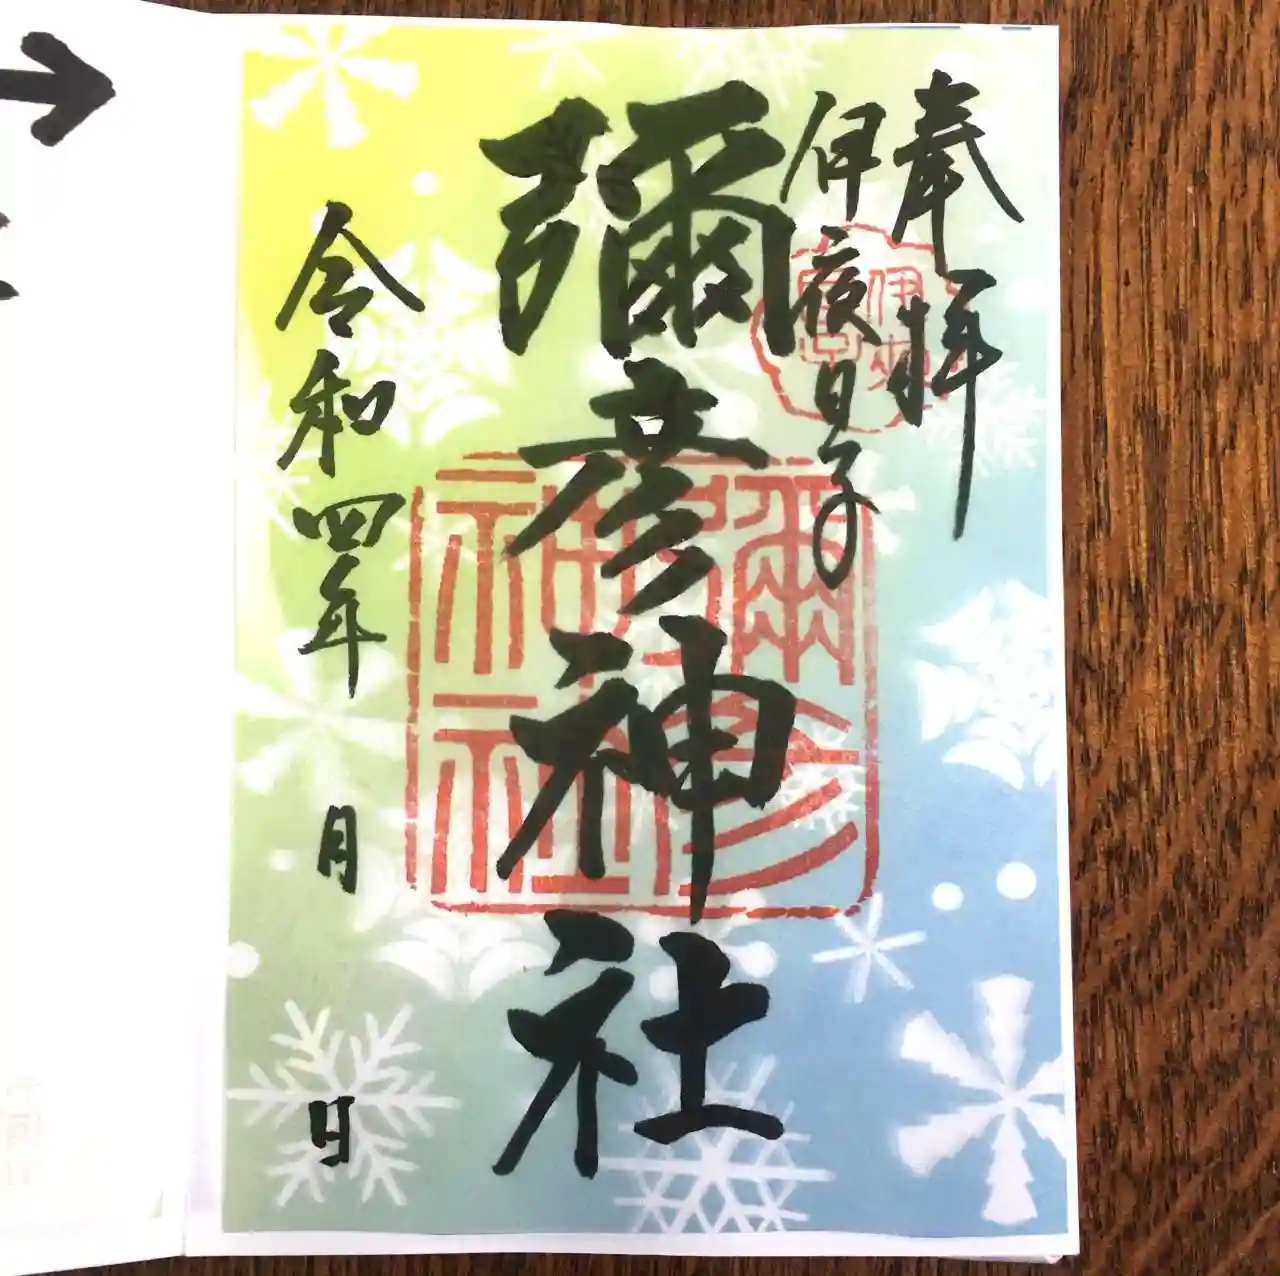 奉拝
伊夜日子
彌彦神社
彌彦神社
令和四年 月 日